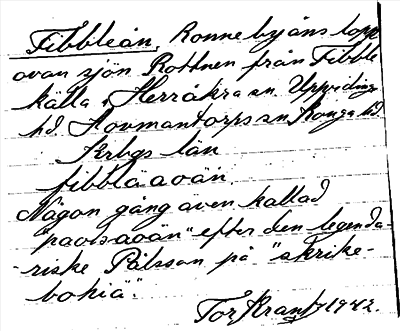 Fibbleån, Ronnebyåns lopp
ovan sjön Rottnen från Fibble
källa, Herråkra sn. Uppvidinge
hd. Hovmantorps sn Konga hd.
Krbgs län
fibbläaoän.
Någon gång även kallad
"pavsaoän" efter den legenda-
-riske Pålsson på "skrike-
bohiä".
Tor 1942.